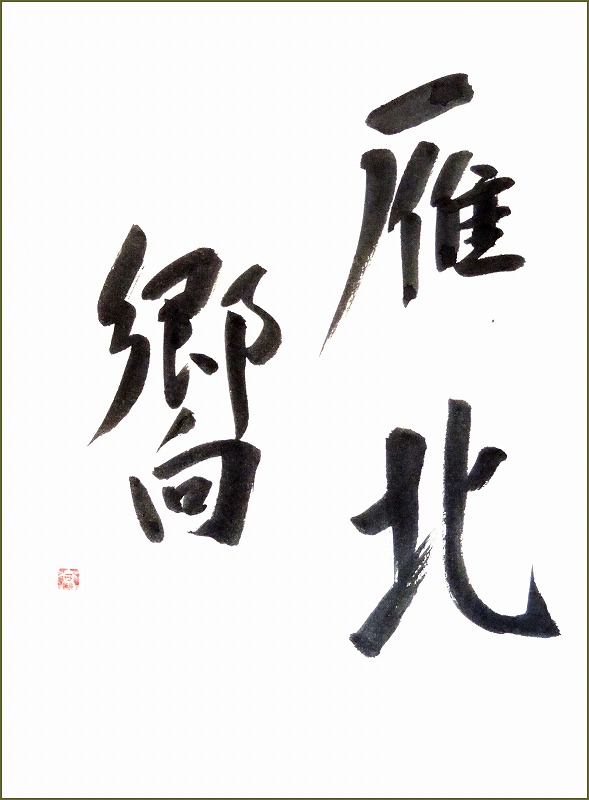 雁北
嚮